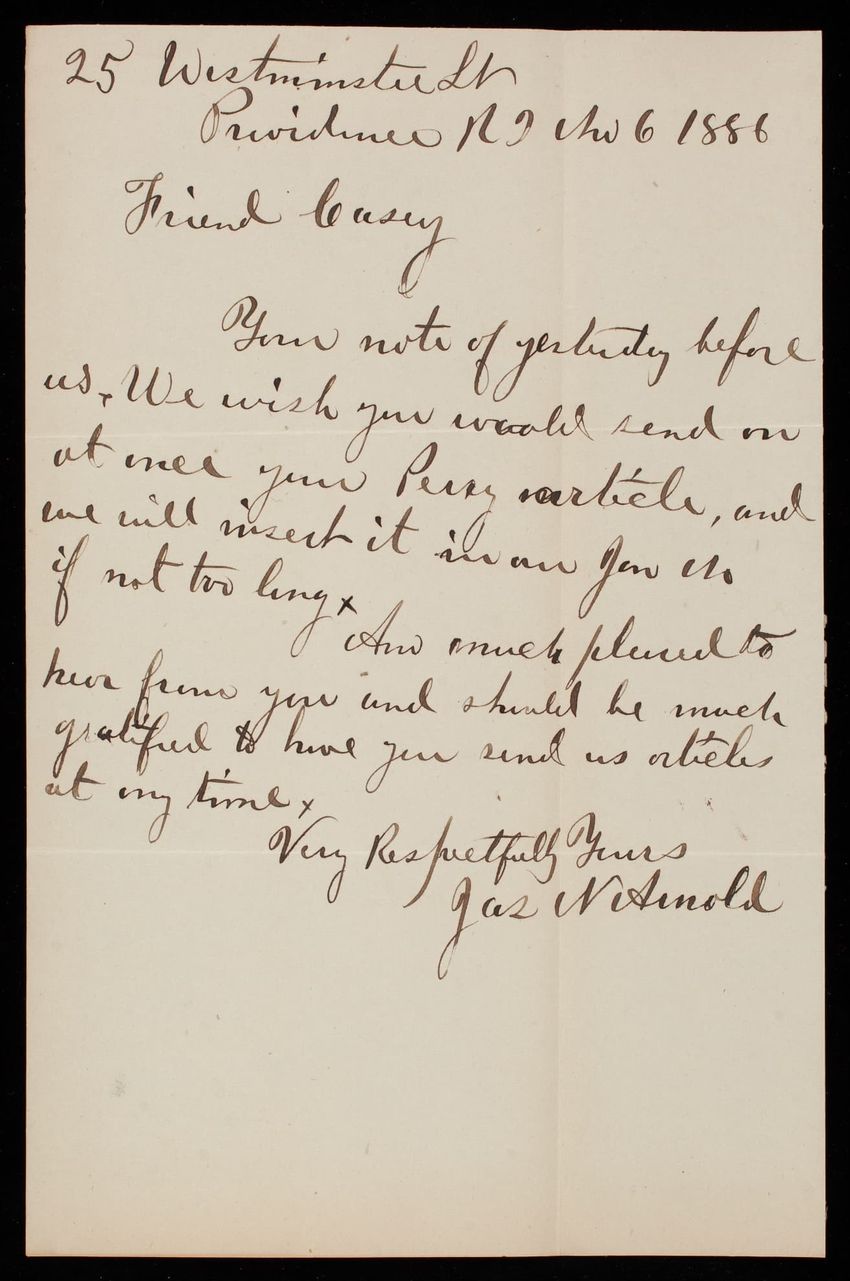 25 Westminster St
Providence R I Nov 6 1886
Friend Casey
Your note of yesterday before
us. We wish you would send on
at once your Perry article, and
we will insert it in our Jan No
if not too long x
Am much pleased to
hear from you and should be much
gratified to have you send us articles
at any time x
Very Respectfully Yours
Jas N Arnold